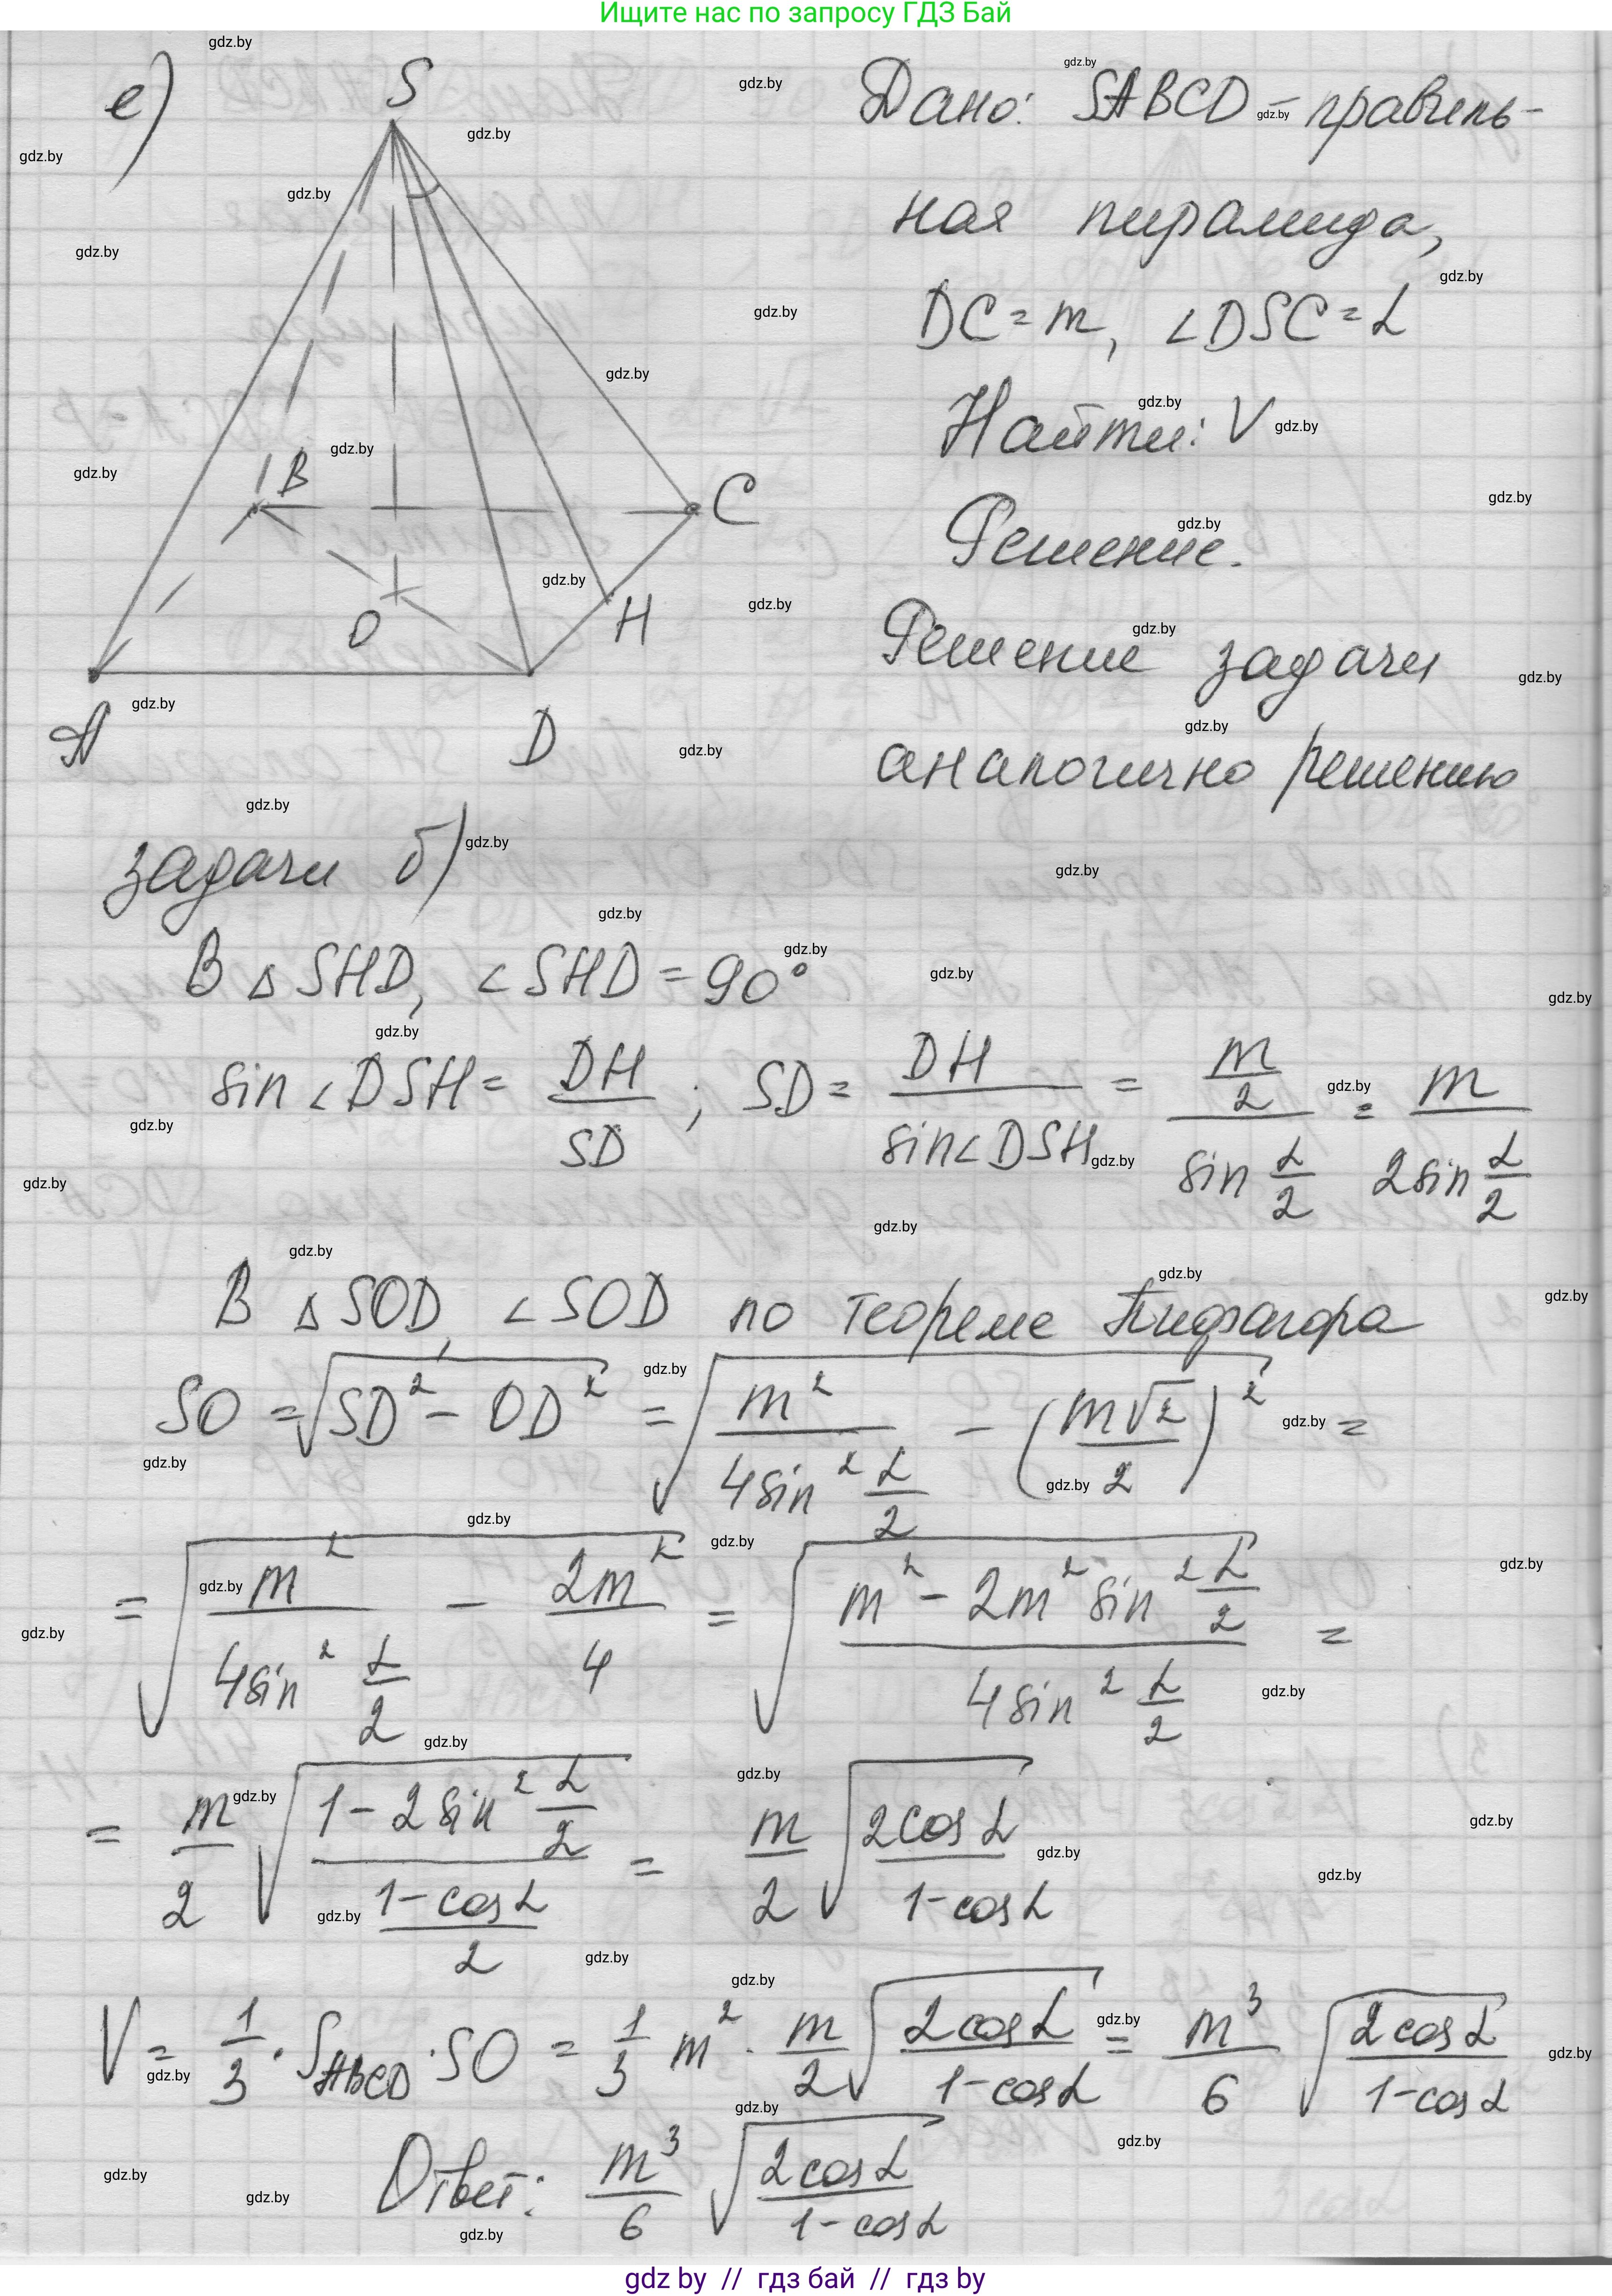 Ищите нас по запросу ГДЗ Бай
е)
S
B
C
O
H
A
D
Дано: SABCD – правиль-
ная пирамида,
DC = m, ∠DSC = α
Найти: V
Решение.
Решение задачи
аналогично решению
задачи б)
В △SHD, ∠SHD = 90°
sin∠DSH = DH/SD ; SD = DH/sin∠DSH = (m/2)/(sin α/2) = m/(2sin α/2)
В △SOD, ∠SOD по теореме Пифагора
SO = √(SD² − OD²) = √(m²/(4sin² α/2) − (m√2/2)²) =
= √(m²/(4sin² α/2) − 2m²/4) = √((m² − 2m² sin² α/2)/(4sin² α/2)) =
= m/2 √((1 − 2sin² α/2)/((1 − cosα)/2)) = m/2 √(2cosα/(1 − cosα))
V = 1/3 · S_ABCD · SO = 1/3 m² · m/2 √(2cosα/(1 − cosα)) = m³/6 √(2cosα/(1 − cosα))
Ответ: m³/6 √(2cosα/(1 − cosα))
gdz by // гдз бай // гдз by